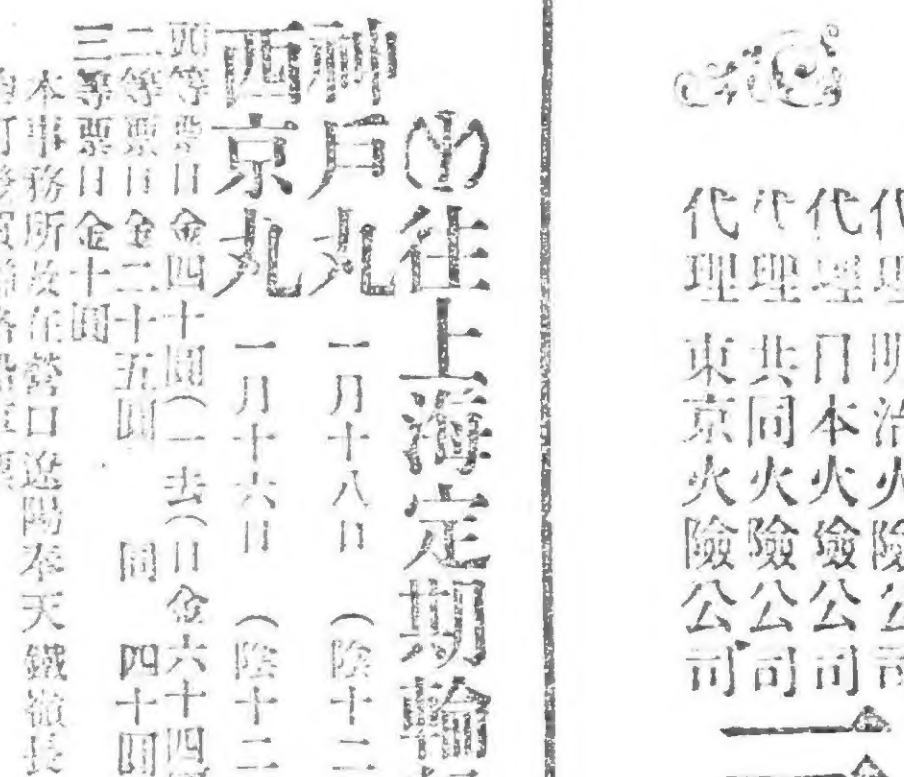 代理 明治火險公司
代理 日本火險公司
代理 共同火險公司
代理 東京火險公司
往上海定期
神戶丸 一月十八日 (陰十二
西京丸 一月十六日 (陰十二
四等票日金四十圓(一去(日金六十四
二等票日金二十五圓 同 四十圓
三等票日金十圓
本事務所故在營口遼陽奉天鐵嶺長